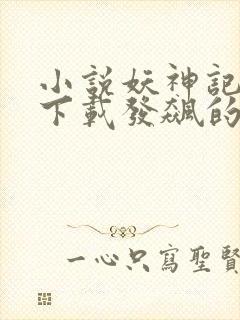 小説妖神記
下載發飆的
一心只寫聖賢